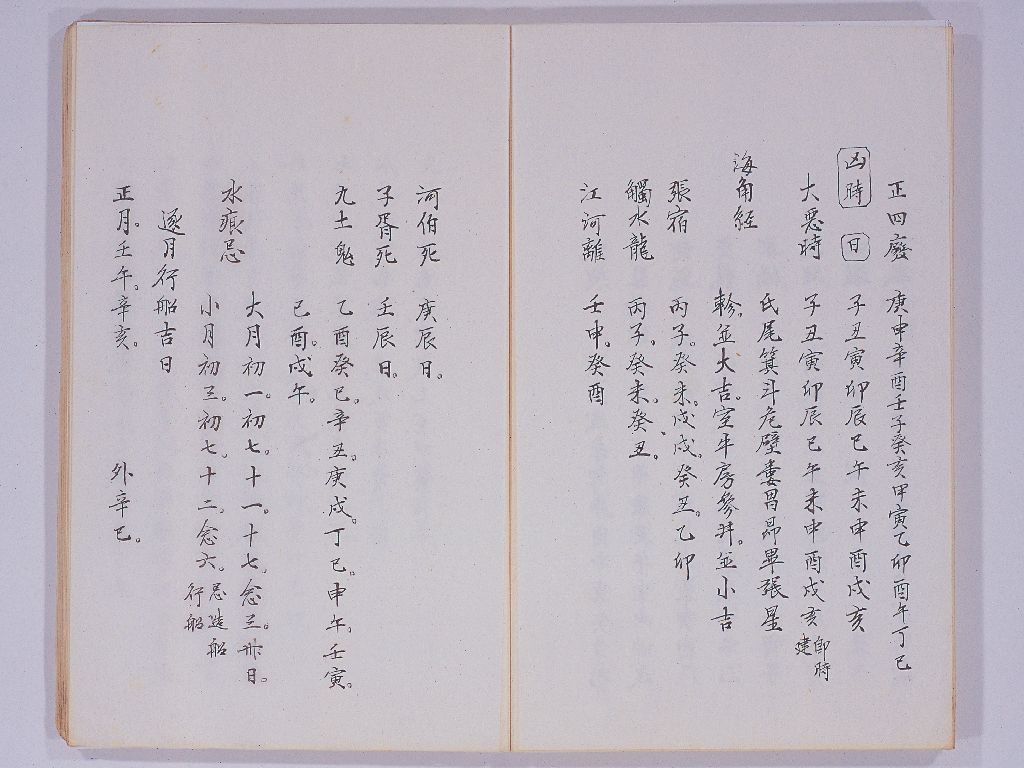 正四廢 庚申辛酉壬子癸亥甲寅乙卯酉午丁巳
凶時 日 子丑寅卯辰巳午未申酉戌亥
大惡時 子丑寅卯辰巳午未申酉戌亥 即時建
氐尾箕斗危壁婁胃昴畢張星
海角經
軫。並大吉。室牛房參井。並小吉
張宿 丙子。癸未。戌戌。癸丑。乙卯
觸水龍 丙子。癸未。癸丑。
江河離 壬申。癸酉
河伯死 庚辰日。
子胥死 壬辰日。
九土鬼 乙酉癸巳。辛丑。庚戌。丁巳。申午。壬寅。
己酉。戌午。
水痕忌 大月初一。初七。十一。十七。念三。卅日。
小月初三。初七。十二。念六。忌造船行船
逐月行船吉日
正月。壬午。辛亥。 外辛巳。